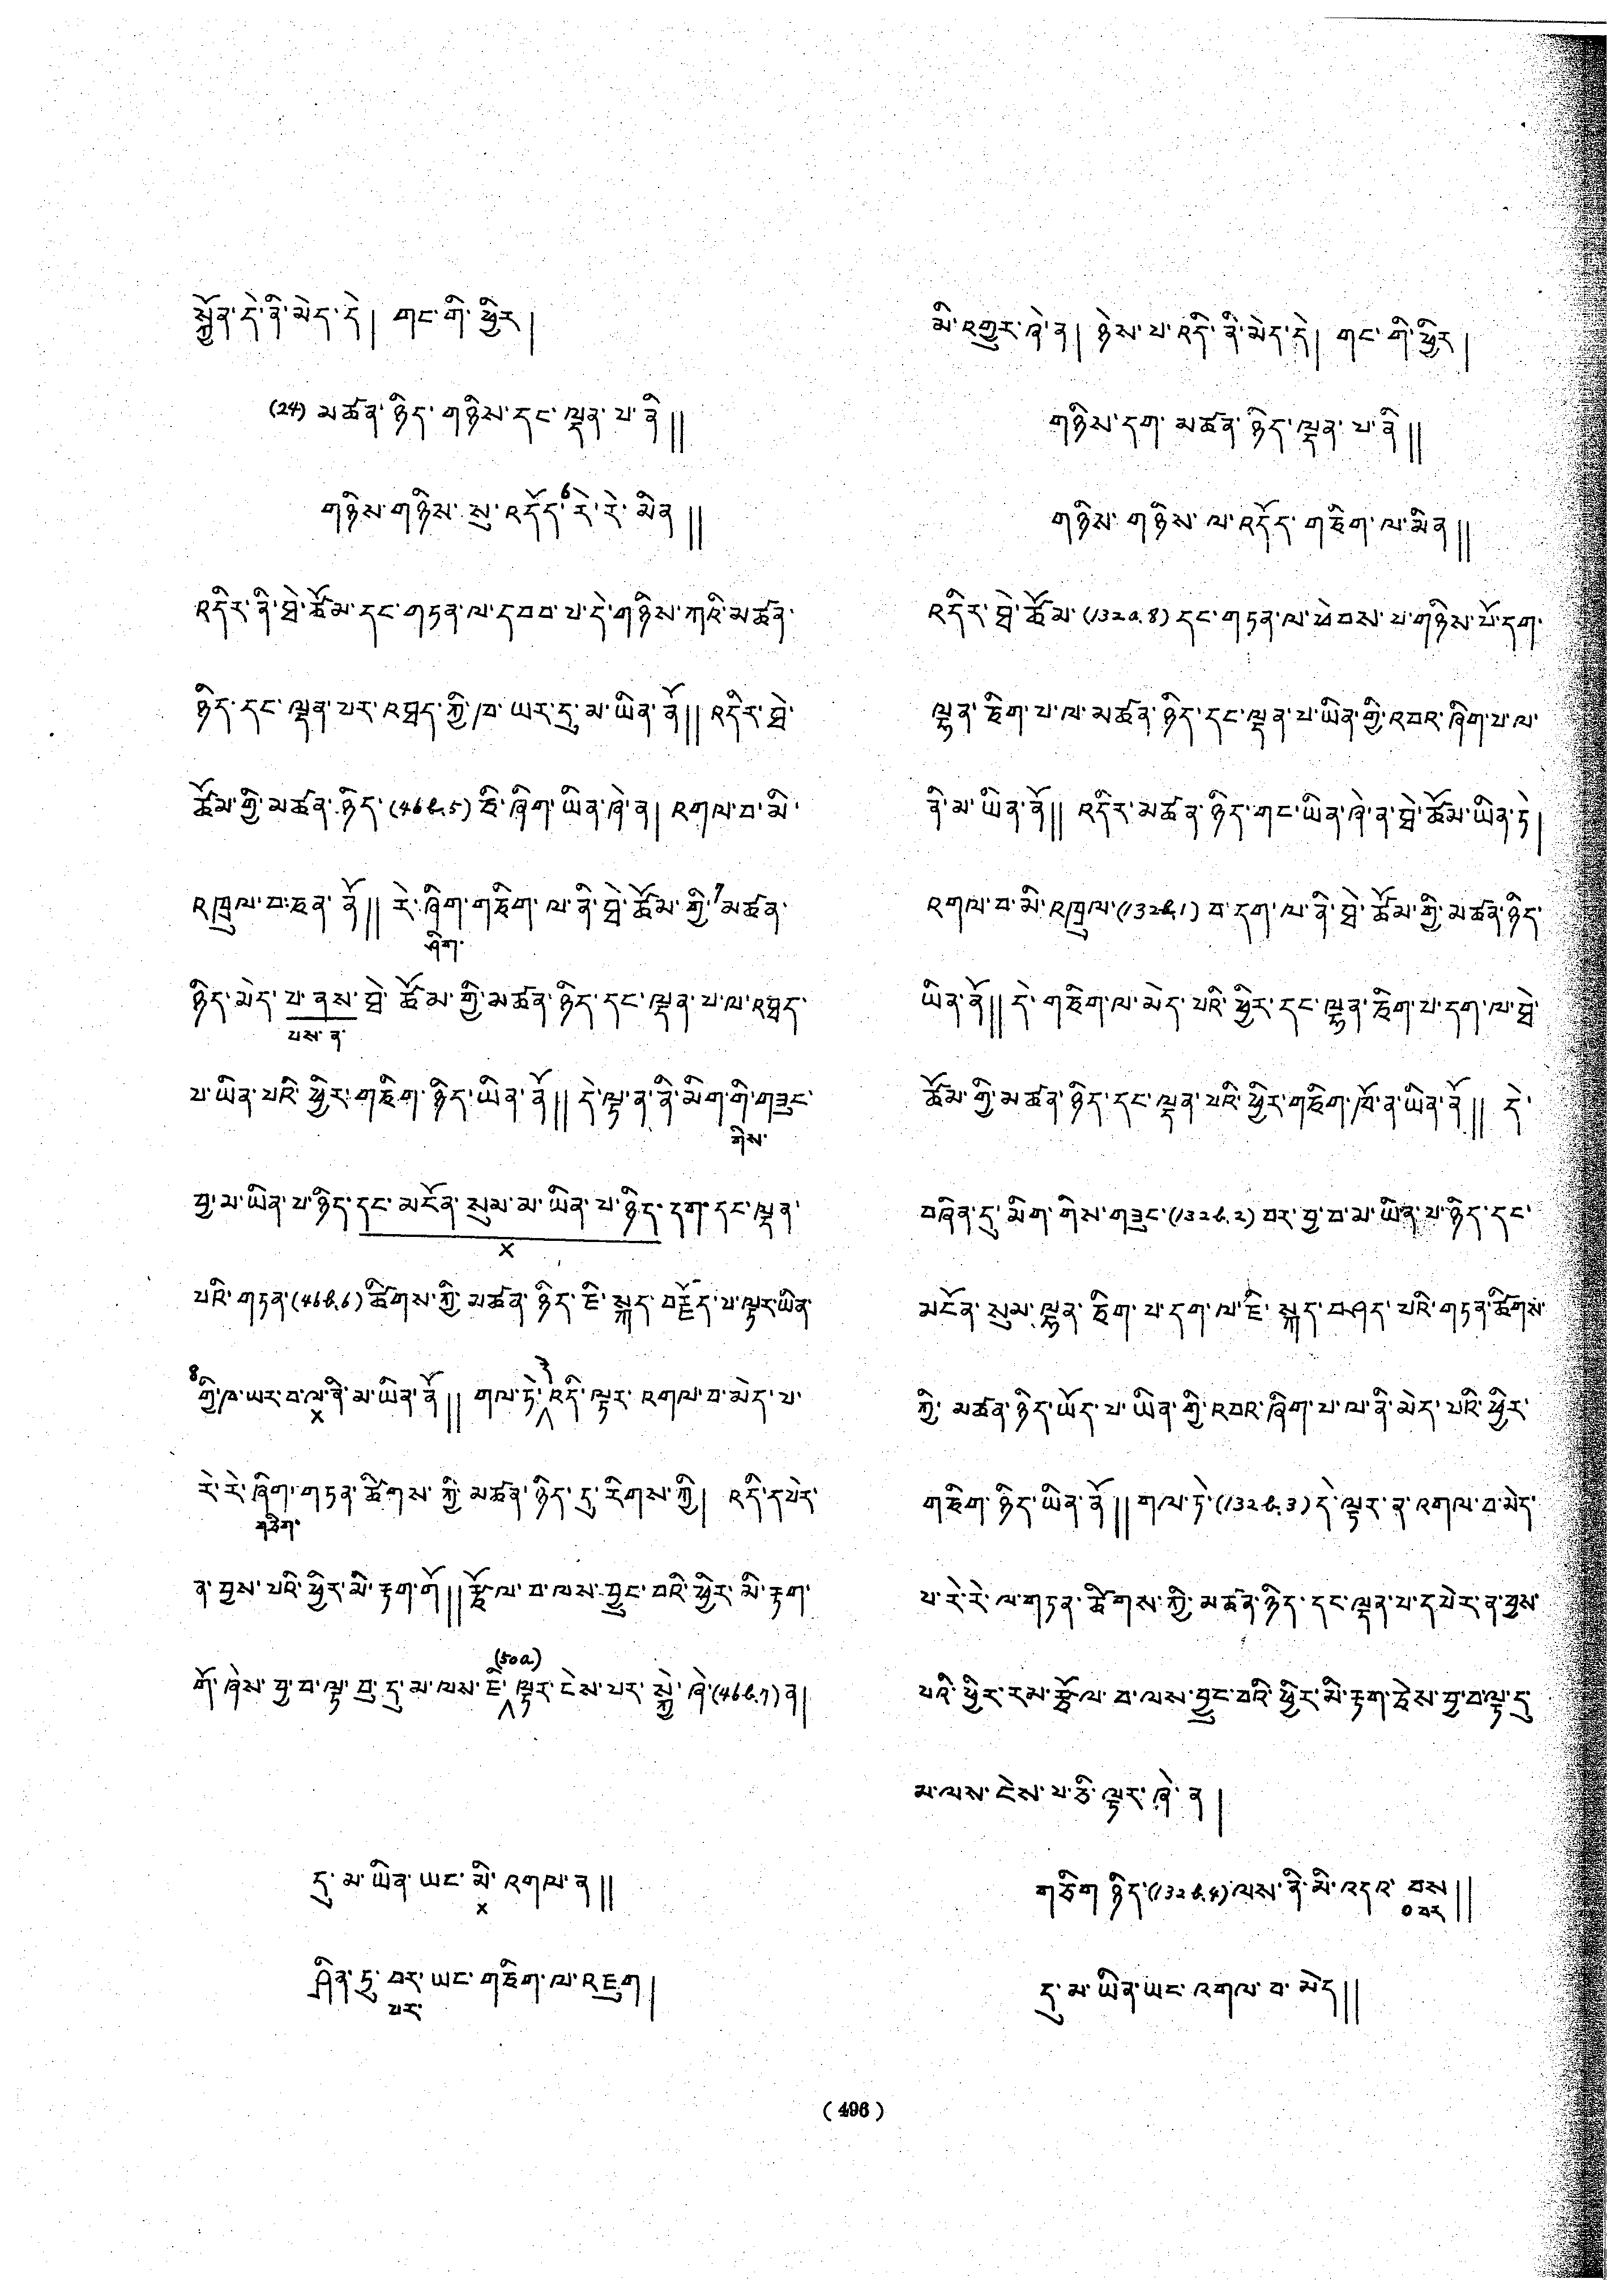 སྐྱོན་དེ་ནི་མེད་དེ། གང་གི་ཕྱིར།
(24) མཚན་ཉིད་གཉིས་དང་ལྡན་པ་ནི༎
གཉིས་གཉིས་སུ་འདོད་6 རེ་རེ་མིན༎
འདིར་ནི་ཐེ་ཚོམ་དང་གཏན་ལ་དབབ་པ་དེ་གཉིས་ཀའི་མཚན་
ཉིད་དང་ལྡན་པར་འཐད་ཀྱི་ཁ་ཡར་དུ་མ་ཡིན་ནོ༎ འདིར་ཐེ་
ཚོམ་གྱི་མཚན་ཉིད་(46b.5) ཇི་ཞིག་ཡིན་ཞེ་ན། འགལ་བ་མི་
འཁྲུལ་བ་ཅན་ནོ༎ རེ་ཞིག་གཅིག་ལ་ནི་ཐེ་ཚོམ་གྱི་7མཚན་
ཤིག་
ཉིད་མེད་པ་ནས་ཐེ་ཚོམ་གྱི་མཚན་ཉིད་དང་ལྡན་པ་ལ་འཐད་
པས་ན་
པ་ཡིན་པའི་ཕྱིར་གཅིག་ཉིད་ཡིན་ནོ༎ དེ་ལྟ་ན་ནི་མིག་གི་གཟུང་
གིས་
བྱ་མ་ཡིན་པ་ཉིད་དང་མངོན་སུམ་མ་ཡིན་པ་ཉིད་དག་དང་ལྡན་
x
པའི་གཏན་(46b.6)ཚིགས་ཀྱི་མཚན་ཉིད་ཇི་སྐད་བརྗོད་པ་ལྟར་ཡིན་
8གྱི་ཁ་ཡར་བ་ལ་ནི་མ་ཡིན་ནོ༎ གལ་ཏེ་འདི་ལྟར་འགལ་བ་མེད་པ་
x
རེ་རེ་ཞིག་གཏན་ཚིགས་ཀྱི་མཚན་ཉིད་དུ་རིགས་ཀྱི། འདི་དཔེར་
གཅིག་
ན་བྱས་པའི་ཕྱིར་མི་རྟག་གོ༎ རྩོལ་བ་ལས་བྱུང་བའི་ཕྱིར་མི་རྟག་
(50a)
གོ་ཞེས་བྱ་བ་ལྟ་བུ་དུ་མ་ལས་ཇི་ལྟར་ངེས་པར་སྐྱེ་ཞེ་(46b.7)ན།
དུ་མ་ཡིན་ཡང་མི་འགལ་ན༎
x
ཤིན་ཏུ་བར་ཡང་གཅིག་ལ་འཇུག།
པར་
མི་འགྱུར་ཞེ་ན། ཉེས་པ་འདི་ནི་མེད་དེ། གང་གི་ཕྱིར།
གཉིས་དག་མཚན་ཉིད་ལྡན་པ་ནི༎
གཉིས་གཉིས་ལ་འདོད་གཅིག་ལ་མིན༎
འདིར་ཐེ་ཚོམ་(132a.8) དང་གཏན་ལ་ཕེབས་པ་གཉིས་པོ་དག་
ལྷན་ཅིག་པ་ལ་མཚན་ཉིད་དང་ལྡན་པ་ཡིན་གྱི་འབའ་ཞིག་པ་ལ་
ནི་མ་ཡིན་ནོ༎ འདིར་མཚན་ཉིད་གང་ཡིན་ཞེ་ན་ཐེ་ཚོམ་ཡིན་ཏེ།
འགལ་བ་མི་འཁྲུལ་(132b.1) བ་དག་ལ་ནི་ཐེ་ཚོམ་གྱི་མཚན་ཉིད་
ཡིན་ནོ༎ དེ་གཅིག་ལ་མེད་པའི་ཕྱིར་དང་ལྷན་ཅིག་པ་དག་ལ་ཐེ་
ཚོམ་གྱི་མཚན་ཉིད་དང་ལྡན་པའི་ཕྱིར་གཅིག་ཁོ་ན་ཡིན་ནོ༎ དེ་
བཞིན་དུ་མིག་གིས་གཟུང་(132b.2) བར་བྱ་བ་མ་ཡིན་པ་ཉིད་དང་
མངོན་སུམ་ལྷན་ཅིག་པ་དག་ལ་ཇི་སྐད་བཤད་པའི་གཏན་ཚིགས་
ཀྱི་མཚན་ཉིད་ཡོད་པ་ཡིན་གྱི་འབའ་ཞིག་པ་ལ་ནི་མེད་པའི་ཕྱིར་
གཅིག་ཉིད་ཡིན་ནོ༎ གལ་ཏེ་(132b.3) དེ་ལྟར་ན་འགལ་བ་མེད་
པ་རེ་རེ་ལ་གཏན་ཚིགས་ཀྱི་མཚན་ཉིད་དང་ལྡན་པ་དཔེར་ན་བྱས་
པའི་ཕྱིར་རམ་རྩོལ་བ་ལས་བྱུང་བའི་ཕྱིར་མི་རྟག་ཅེས་བྱ་བ་ལྟ་དུ་
མ་ལས་ངེས་པ་ཅི་ལྟར་ཞེ་ན།
གཅིག་ཉིད་(132b.4)ལས་ནི་མི་འདའ་བས༎
○བར
དུ་མ་ཡིན་ཡང་འགལ་བ་མེད༎
( 496 )